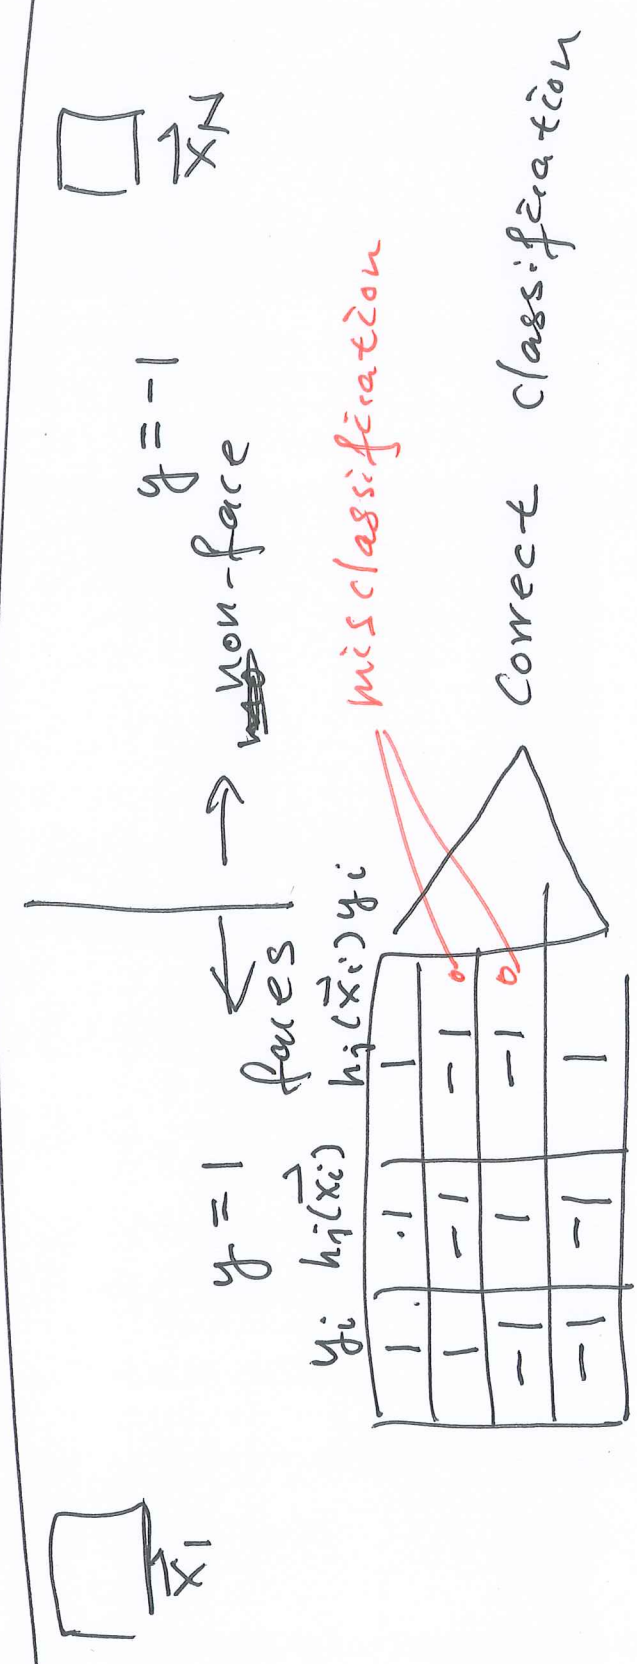 x⃗1 x⃗N
y = 1 y = -1
faces ← → non-face
yi hj(x⃗i) hj(x⃗i)yi
1 1 1
1 -1 -1
-1 1 -1
-1 -1 1
misclassification
Correct classification